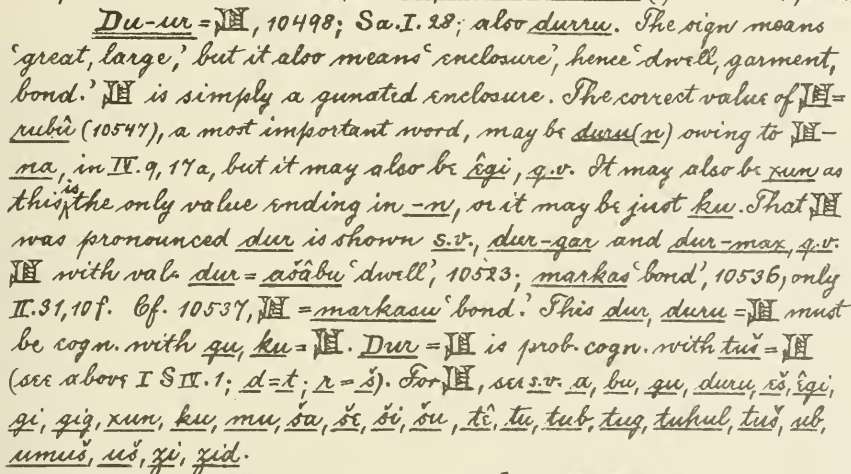 Du-ur = 𒆪, 10498; Sa. I. 28; also durru. The sign means
'great, large,' but it also means 'enclosure', hence 'dwell, garment,
bond.' 𒆪 is simply a gunated enclosure. The correct value of 𒆪 =
rubû (10547), a most important word, may be duru(n) owing to 𒆪-
na, in IV. 9, 17a, but it may also be êgi, q.v. It may also be xun as
this is the only value ending in -n, or it may be just ku. That 𒆪
was pronounced dur is shown s.v., dur-gar and dur-max, q.v.
𒆪 with val. dur = ašâbu 'dwell', 10523; markas 'bond', 10536, only
II. 31, 10f. Cf. 10537, 𒆪 = markasu 'bond.' This dur, duru = 𒆪 must
be cogn. with gu, ku = 𒆪. Dur = 𒆪 is prob. cogn. with tuš = 𒆪
(see above I S IV. 1; d=t; r=š). For 𒆪, see s.v. a, bu, gu, duru, eš, êgi,
gi, gig, xun, ku, mu, ša, še, ši, šu, tê, tu, tub, tug, tuhul, tuš, ub,
umuš, uš, zi, zid.